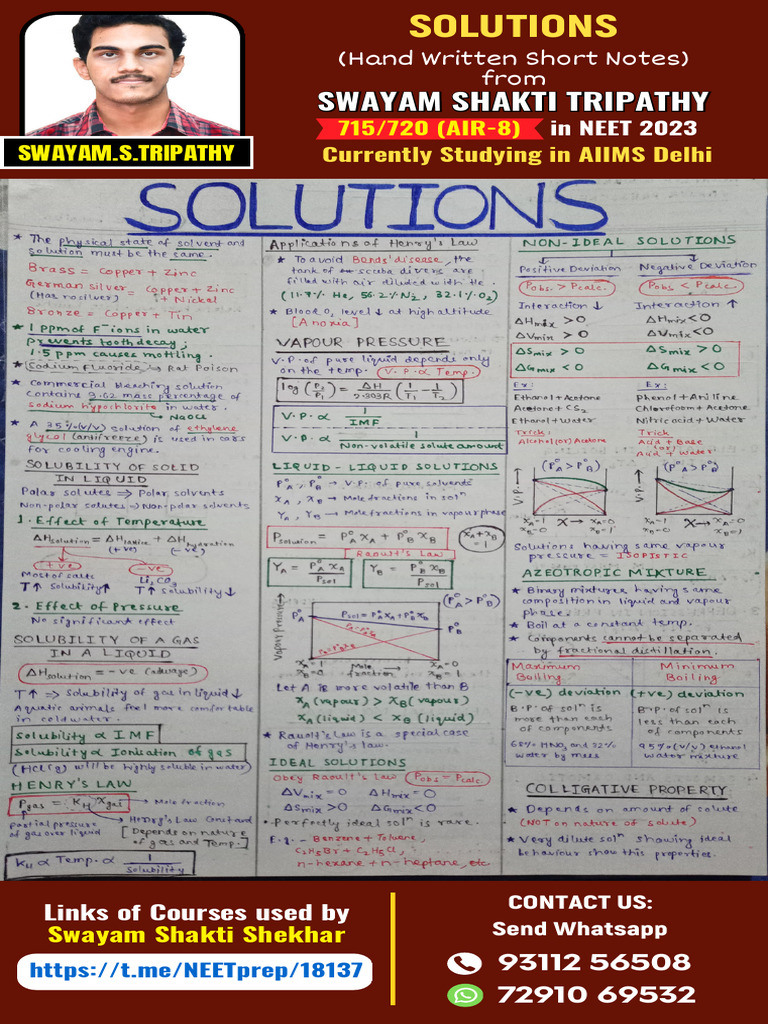 SOLUTIONS
(Hand Written Short Notes)
from
SWAYAM SHAKTI TRIPATHY
715/720 (AIR-8) in NEET 2023
Currently Studying in AIIMS Delhi
SWAYAM.S.TRIPATHY
SOLUTIONS
★ The physical state of solvent and
solution must be the same.
Brass = Copper + Zinc
German silver = Copper + Zinc
+ Nickel
Bronze = Copper + Tin
★ 1 ppm of F⁻ ions in water
prevents tooth decay,
1.5 ppm causes mottling.
★ Sodium Fluoride → Rat Poison
★ Commercial bleaching solution
contains 3.62 mass percentage of
sodium hypochlorite in water.
→ NaOCl
★ A 35% (v/v) solution of ethylene
glycol (antifreeze) is used in cars
for cooling engine.
SOLUBILITY OF SOLID
IN LIQUID
Polar solutes → Polar solvents
Non-polar solutes → Non-polar solvents
1. Effect of Temperature
ΔHsolution = ΔHlattice + ΔHhydration
(+ve) (-ve)
+ve -ve
Most of salts Li₂CO₃
T↑ solubility↑ T↑ solubility↓
2. Effect of Pressure
No significant effect
SOLUBILITY OF A GAS
IN A LIQUID
ΔHsolution = -ve (always)
T↑ ⇒ Solubility of gas in liquid ↓
Aquatic animals feel more comfortable
in cold water.
Solubility ∝ IMF
Solubility ∝ Ionisation of gas
(HCl(g) will be highly soluble in water)
HENRY'S LAW
Pgas = KH Xgas → Mole fraction
Partial pressure
of gas over liquid
→ Henry's Law Constant
[Depends on nature
of gas and Temp.]
KH ∝ Temp. ∝ 1/Solubility
Applications of Henry's Law
★ To avoid Bends' disease, the
tank of scuba divers are
filled with air diluted with He.
(11.7% He, 56.2% N₂, 32.1% O₂)
★ Blood O₂ level ↓ at high altitude
[Anoxia]
VAPOUR PRESSURE
V.P. of pure liquid depends only
on the temp. V.P. ∝ Temp.
log(P₂/P₁) = ΔH/2.303R (1/T₁ - 1/T₂)
V.P. ∝ 1/IMF
V.P. ∝ 1/Non-volatile solute amount
LIQUID - LIQUID SOLUTIONS
P°A, P°B → V.P. of pure solvents
XA, XB → Mole fractions in solⁿ
YA, YB → Mole fractions in vapour phase
Psolution = P°A XA + P°B XB
XA + XB = 1
Raoult's LAW
YA = P°A XA/Psol YB = P°B XB/Psol
(P°A > P°B)
Vapour Pressure →
P°A
Psol = P°A XA + P°B XB
P°B
XA = 1 Mole XA = 0
XB = 0 fraction XB = 1
Let A is more volatile than B
XA (vapour) > XB (vapour)
XA (liquid) < XB (liquid)
★ Raoult's law is a special case
of Henry's law.
IDEAL SOLUTIONS
Obey Raoult's Law Pobs = Pcalc.
ΔVmix = 0 ΔHmix = 0
ΔSmix > 0 ΔGmix < 0
• Perfectly ideal solⁿ is rare.
E.g. - Benzene + Toluene,
C₂H₅Br + C₂H₅Cl,
n-hexane + n-heptane, etc
NON-IDEAL SOLUTIONS
Positive Deviation Negative Deviation
Pobs. > Pcalc. Pobs < Pcalc.
Interaction ↓ Interaction ↑
ΔHmix > 0 ΔHmix < 0
ΔVmix > 0 ΔVmix < 0
ΔSmix > 0 ΔSmix > 0
ΔGmix < 0 ΔGmix < 0
Ex: Ex:
Ethanol + Acetone Phenol + Aniline
Acetone + CS₂ Chloroform + Acetone
Ethanol + Water Nitric acid + Water
Trick: Trick
Alcohol (or) Acetone Acid + Base
(or)
Acid + Water
(P°A > P°B) (P°A > P°B)
V.P→ V.P→
XA=1 X→ XA=0 XA=1 X→ XA=0
XB=0 XB=1 XB=0 XB=1
Solutions having same vapour
pressure = ISOPIESTIC
AZEOTROPIC MIXTURE
★ Binary mixtures having same
composition in liquid and vapour
phase.
★ Boil at a constant temp.
★ Components cannot be separated
by fractional distillation.
Maximum Minimum
Boiling Boiling
(-ve) deviation (+ve) deviation
B.P. of solⁿ is B.P. of solⁿ is
more than each less than each
of components of components
68% HNO₃ and 32% 95% (v/v) ethanol
water by mass water mixture
COLLIGATIVE PROPERTY
★ Depends on amount of solute
(NOT on nature of solute)
★ Very dilute solⁿ showing ideal
behaviour show this properties.
Links of Courses used by
Swayam Shakti Shekhar
https://t.me/NEETprep/18137
CONTACT US:
Send Whatsapp
93112 56508
72910 69532